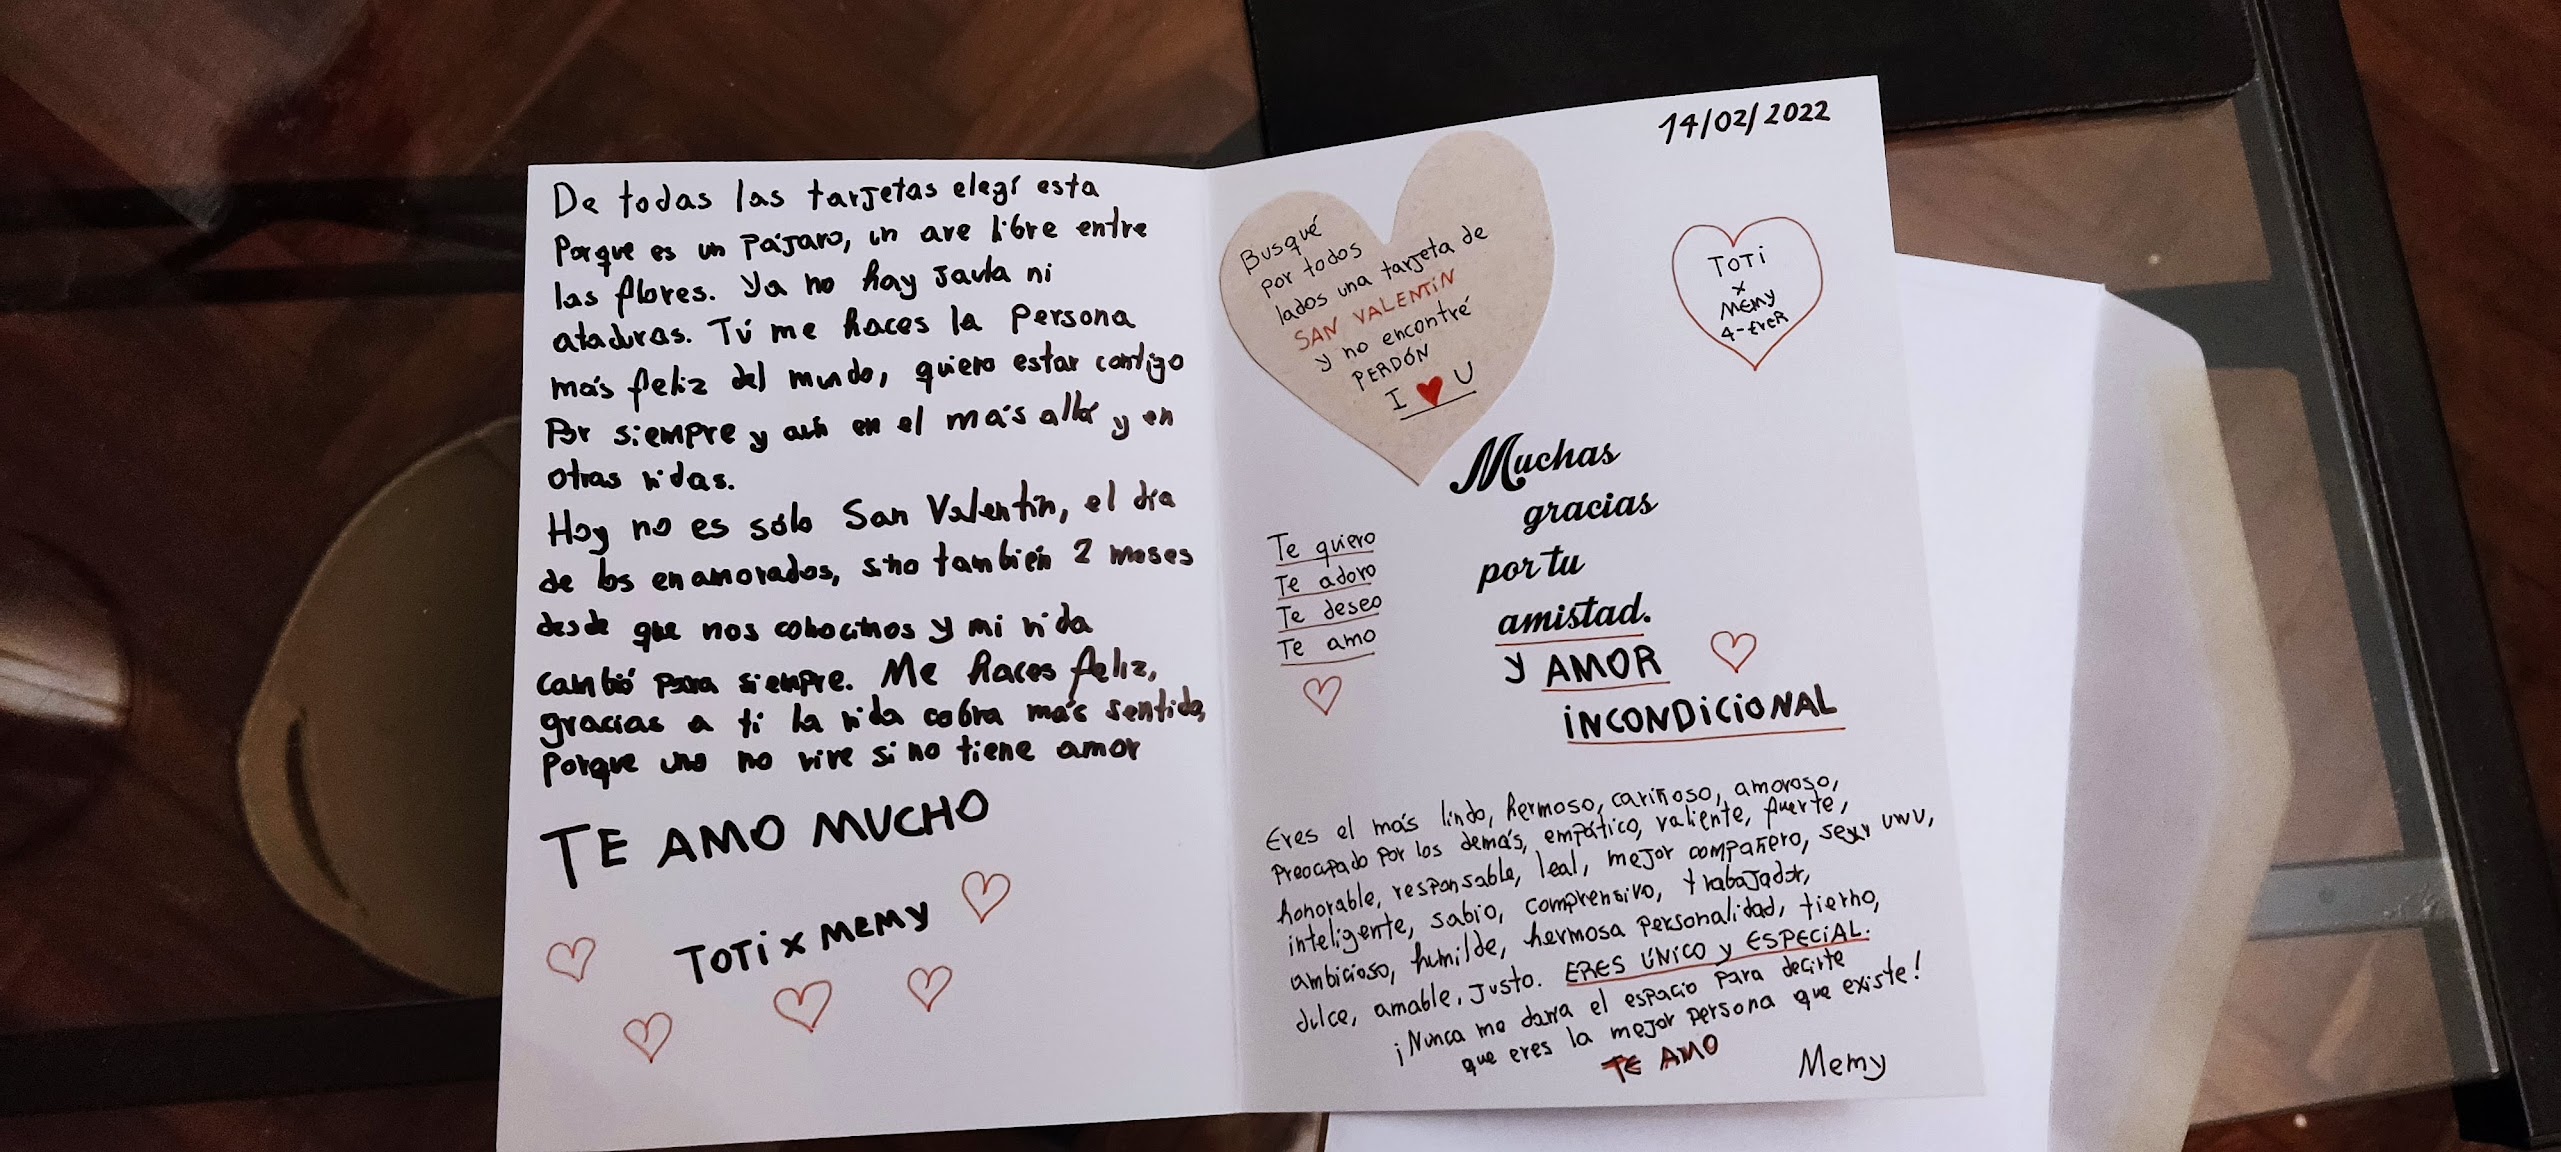 De todas las tarjetas elegí esta
Porque es un pájaro, un ave libre entre
las flores. Ya no hay jaula ni
ataduras. Tú me haces la persona
más feliz del mundo, quiero estar contigo
Por siempre y aún en el más allá y en
otras vidas.
Hoy no es sólo San Valentín, el día
de los enamorados, sino también 2 meses
desde que nos conocimos y mi vida
cambió para siempre. Me haces feliz,
gracias a ti la vida cobra más sentido,
Porque uno no vive si no tiene amor
TE AMO MUCHO
TOTi x MEMY
14/02/2022
Busqué
por todos
lados una tarjeta de
SAN VALENTiN
y no encontré
PERDÓN
I ♥ U
TOTi
x
MEMY
4-EVER
Muchas
gracias
por tu
amistad.
y AMOR
iNCONDiCiONAL
Te quiero
Te adoro
Te deseo
Te amo
Eres el más lindo, hermoso, cariñoso, amoroso,
Preocupado por los demás, empático, valiente, fuerte,
honorable, responsable, leal, mejor compañero, sexy UWU,
inteligente, sabio, comprensivo, trabajador,
ambicioso, humilde, hermosa personalidad, tierno,
dulce, amable, justo. ERES ÚNiCO y ESPECiAL.
¡Nunca me daría el espacio para decirte
que eres la mejor persona que existe!
TE AMO
Memy